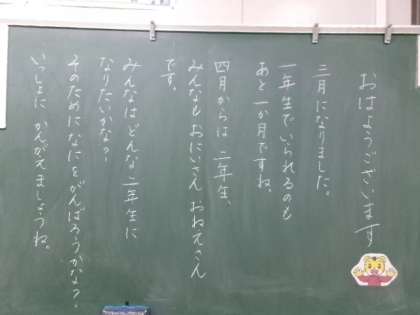 おはようございます
三月になりました。
一年生でいられるのも
あと一か月ですね。
四月からは二年生、
みんなも おにいさん おねえさん
です。
みんなは どんな二年生に
なりたいかな？
そのために なにを がんばろうかな？
いっしょに かんがえましょうね。